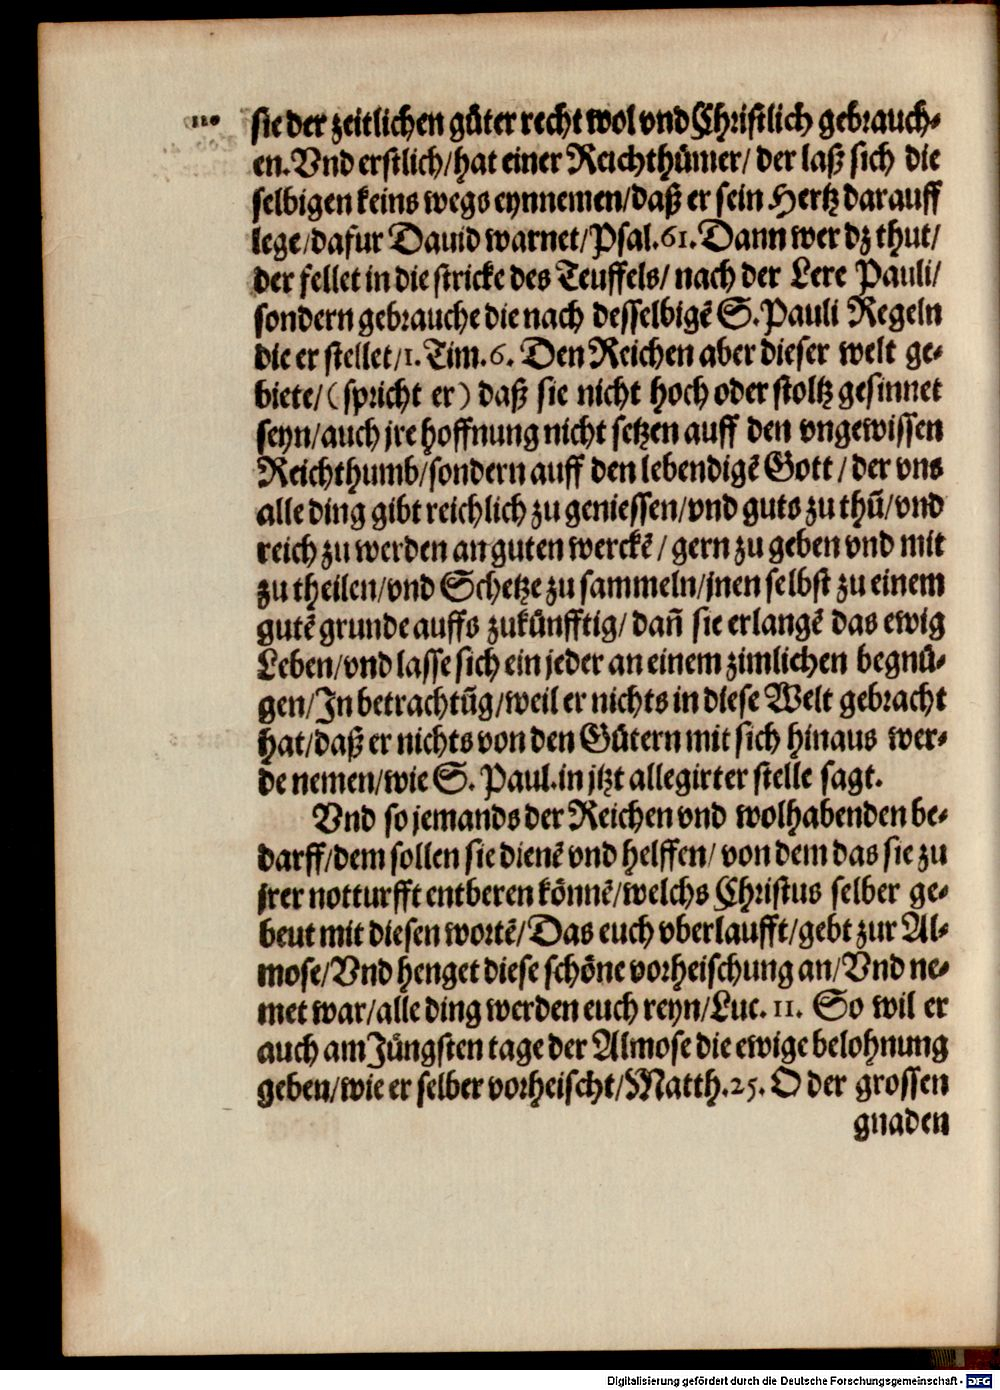 sie der zeitlichen güter recht wol vnd Christlich gebrauch-
en. Vnd erstlich/hat einer Reichthümer/ der laß sich die
selbigen keins wegs eynnemen/daß er sein Hertz darauff
lege/dafur Dauid warnet/Psal.61. Dann wer dz thut/
der fellet in die stricke des Teuffels/ nach der Lere Pauli/
sondern gebrauche die nach desselbigē S. Pauli Regeln
die er stellet/1. Tim. 6. Den Reichen aber dieser welt ge-
biete/(spricht er) daß sie nicht hoch oder stoltz gesinnet
seyn/auch jre hoffnung nicht setzen auff den vngewissen
Reichthumb/sondern auff den lebendigē Gott/ der vns
alle ding gibt reichlich zu geniessen/vnd guts zu thū/vnd
reich zu werden an guten werckē/ gern zu geben vnd mit
zu theilen/vnd Schetze zu sammeln/jnen selbst zu einem
gutē grunde auffs zukünfftig/ dañ sie erlangē das ewig
Leben/vnd lasse sich ein jeder an einem zimlichen begnü-
gen/In betrachtūg/weil er nichts in diese Welt gebracht
hat/daß er nichts von den Gütern mit sich hinaus wer-
de nemen/wie S. Paul. in jtzt allegirter stelle sagt.
Vnd so jemands der Reichen vnd wolhabenden be-
darff/dem sollen sie dienē vnd helffen/ von dem das sie zu
jrer notturfft entberen könnē/welchs Christus selber ge-
beut mit diesen wortē/Das euch vberlaufft/gebt zur Al-
mose/Vnd henget diese schöne vorheischung an/Vnd ne-
met war/alle ding werden euch reyn/Luc. 11. So wil er
auch am Jüngsten tage der Almose die ewige belohnung
geben/wie er selber vorheischt/Matth. 25. O der grossen
gnaden
Digitalisierung gefördert durch die Deutsche Forschungsgemeinschaft - DFG